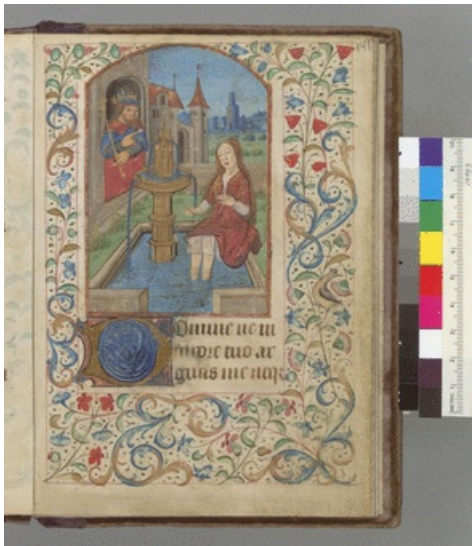 Domine ne in
furore tuo ar
guas me neq3